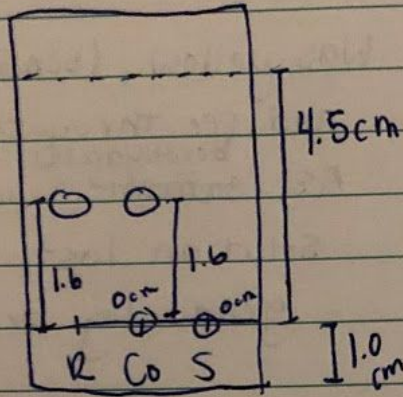 4.5cm
1.6
1.6
0cm
0cm
R Co S
1.0
cm